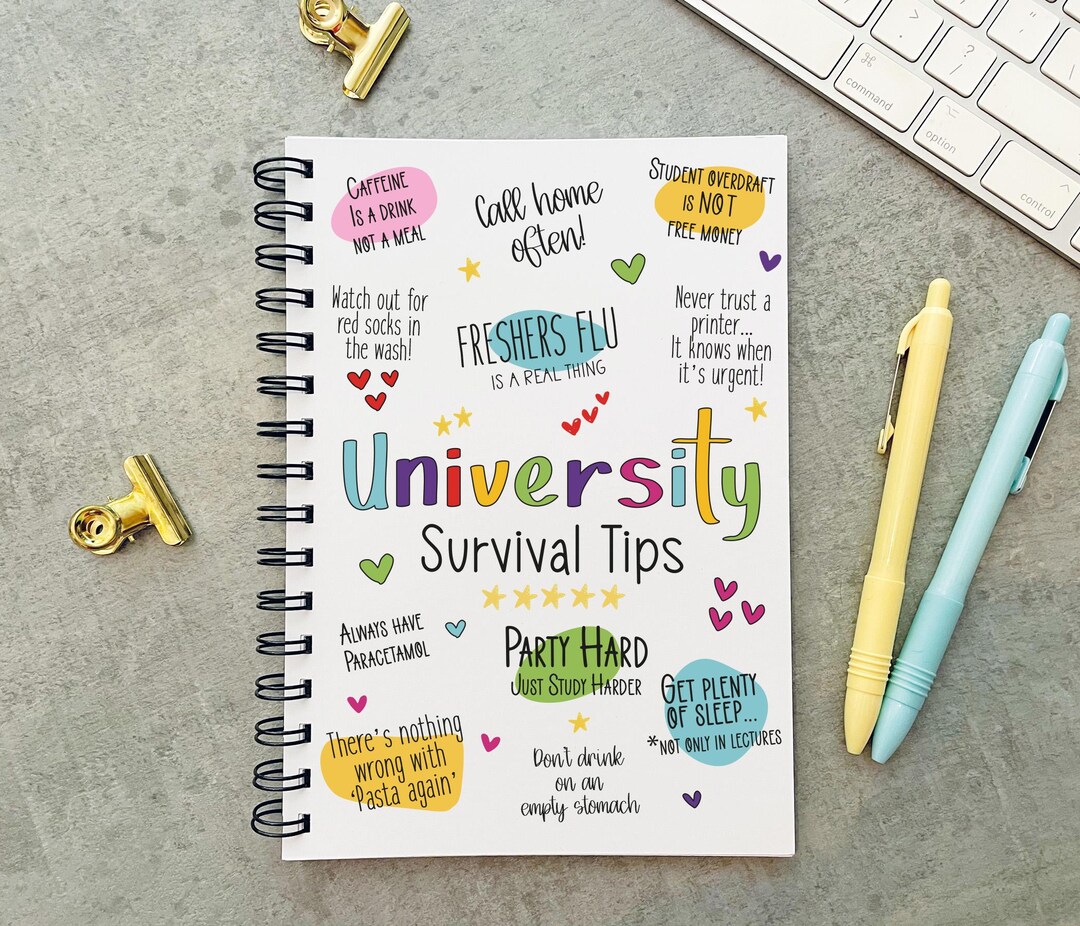 CAFFEINE
IS A DRINK
NOT A MEAL
Call home
often!
STUDENT OVERDRAFT
IS NOT
FREE MONEY
Watch out for
red socks in
the wash!
FRESHERS FLU
IS A REAL THING
Never trust a
printer...
It knows when
it's urgent!
University
Survival Tips
ALWAYS HAVE
PARACETAMOL
PARTY HARD
JUST STUDY HARDER
GET PLENTY
OF SLEEP...
*NOT ONLY IN LECTURES
There's nothing
wrong with
'Pasta again'
Don't drink
on an
empty stomach
> .
? /
⌘
command
option
control